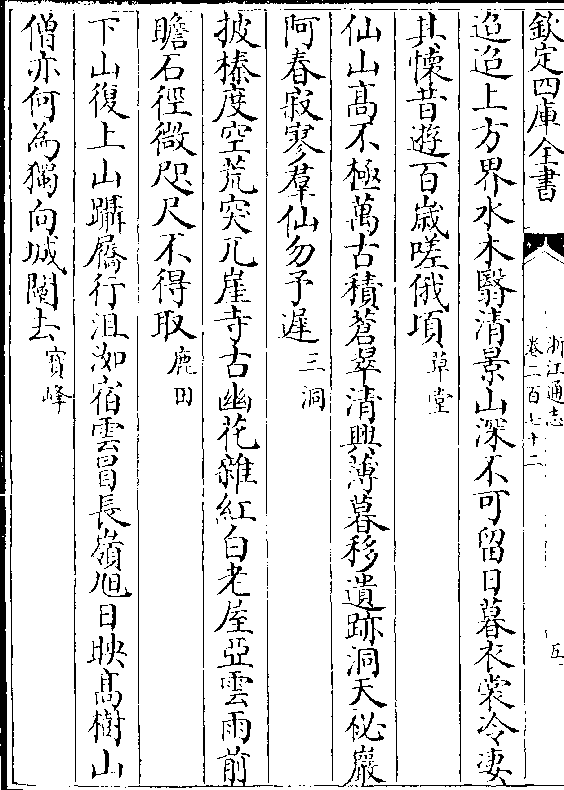 欽定四庫全書
浙江通志
卷二百七十二
五
迢迢上方界水木翳清景山深不可留日暮衣裳冷淒
其懷昔遊百歲嗟俄頃草堂
仙山髙不極萬古積蒼翠清興薄暮移遺跡洞天秘巖
阿春寂寥羣仙勿予遲三洞
披榛度空荒突兀崖寺古幽花雜紅白老屋亞雲雨前
瞻石徑微咫尺不得取鹿田
下山復上山躡屩行沮洳宿雲冒長嶺旭日映髙樹山
僧亦何為獨向城闉去寶峰